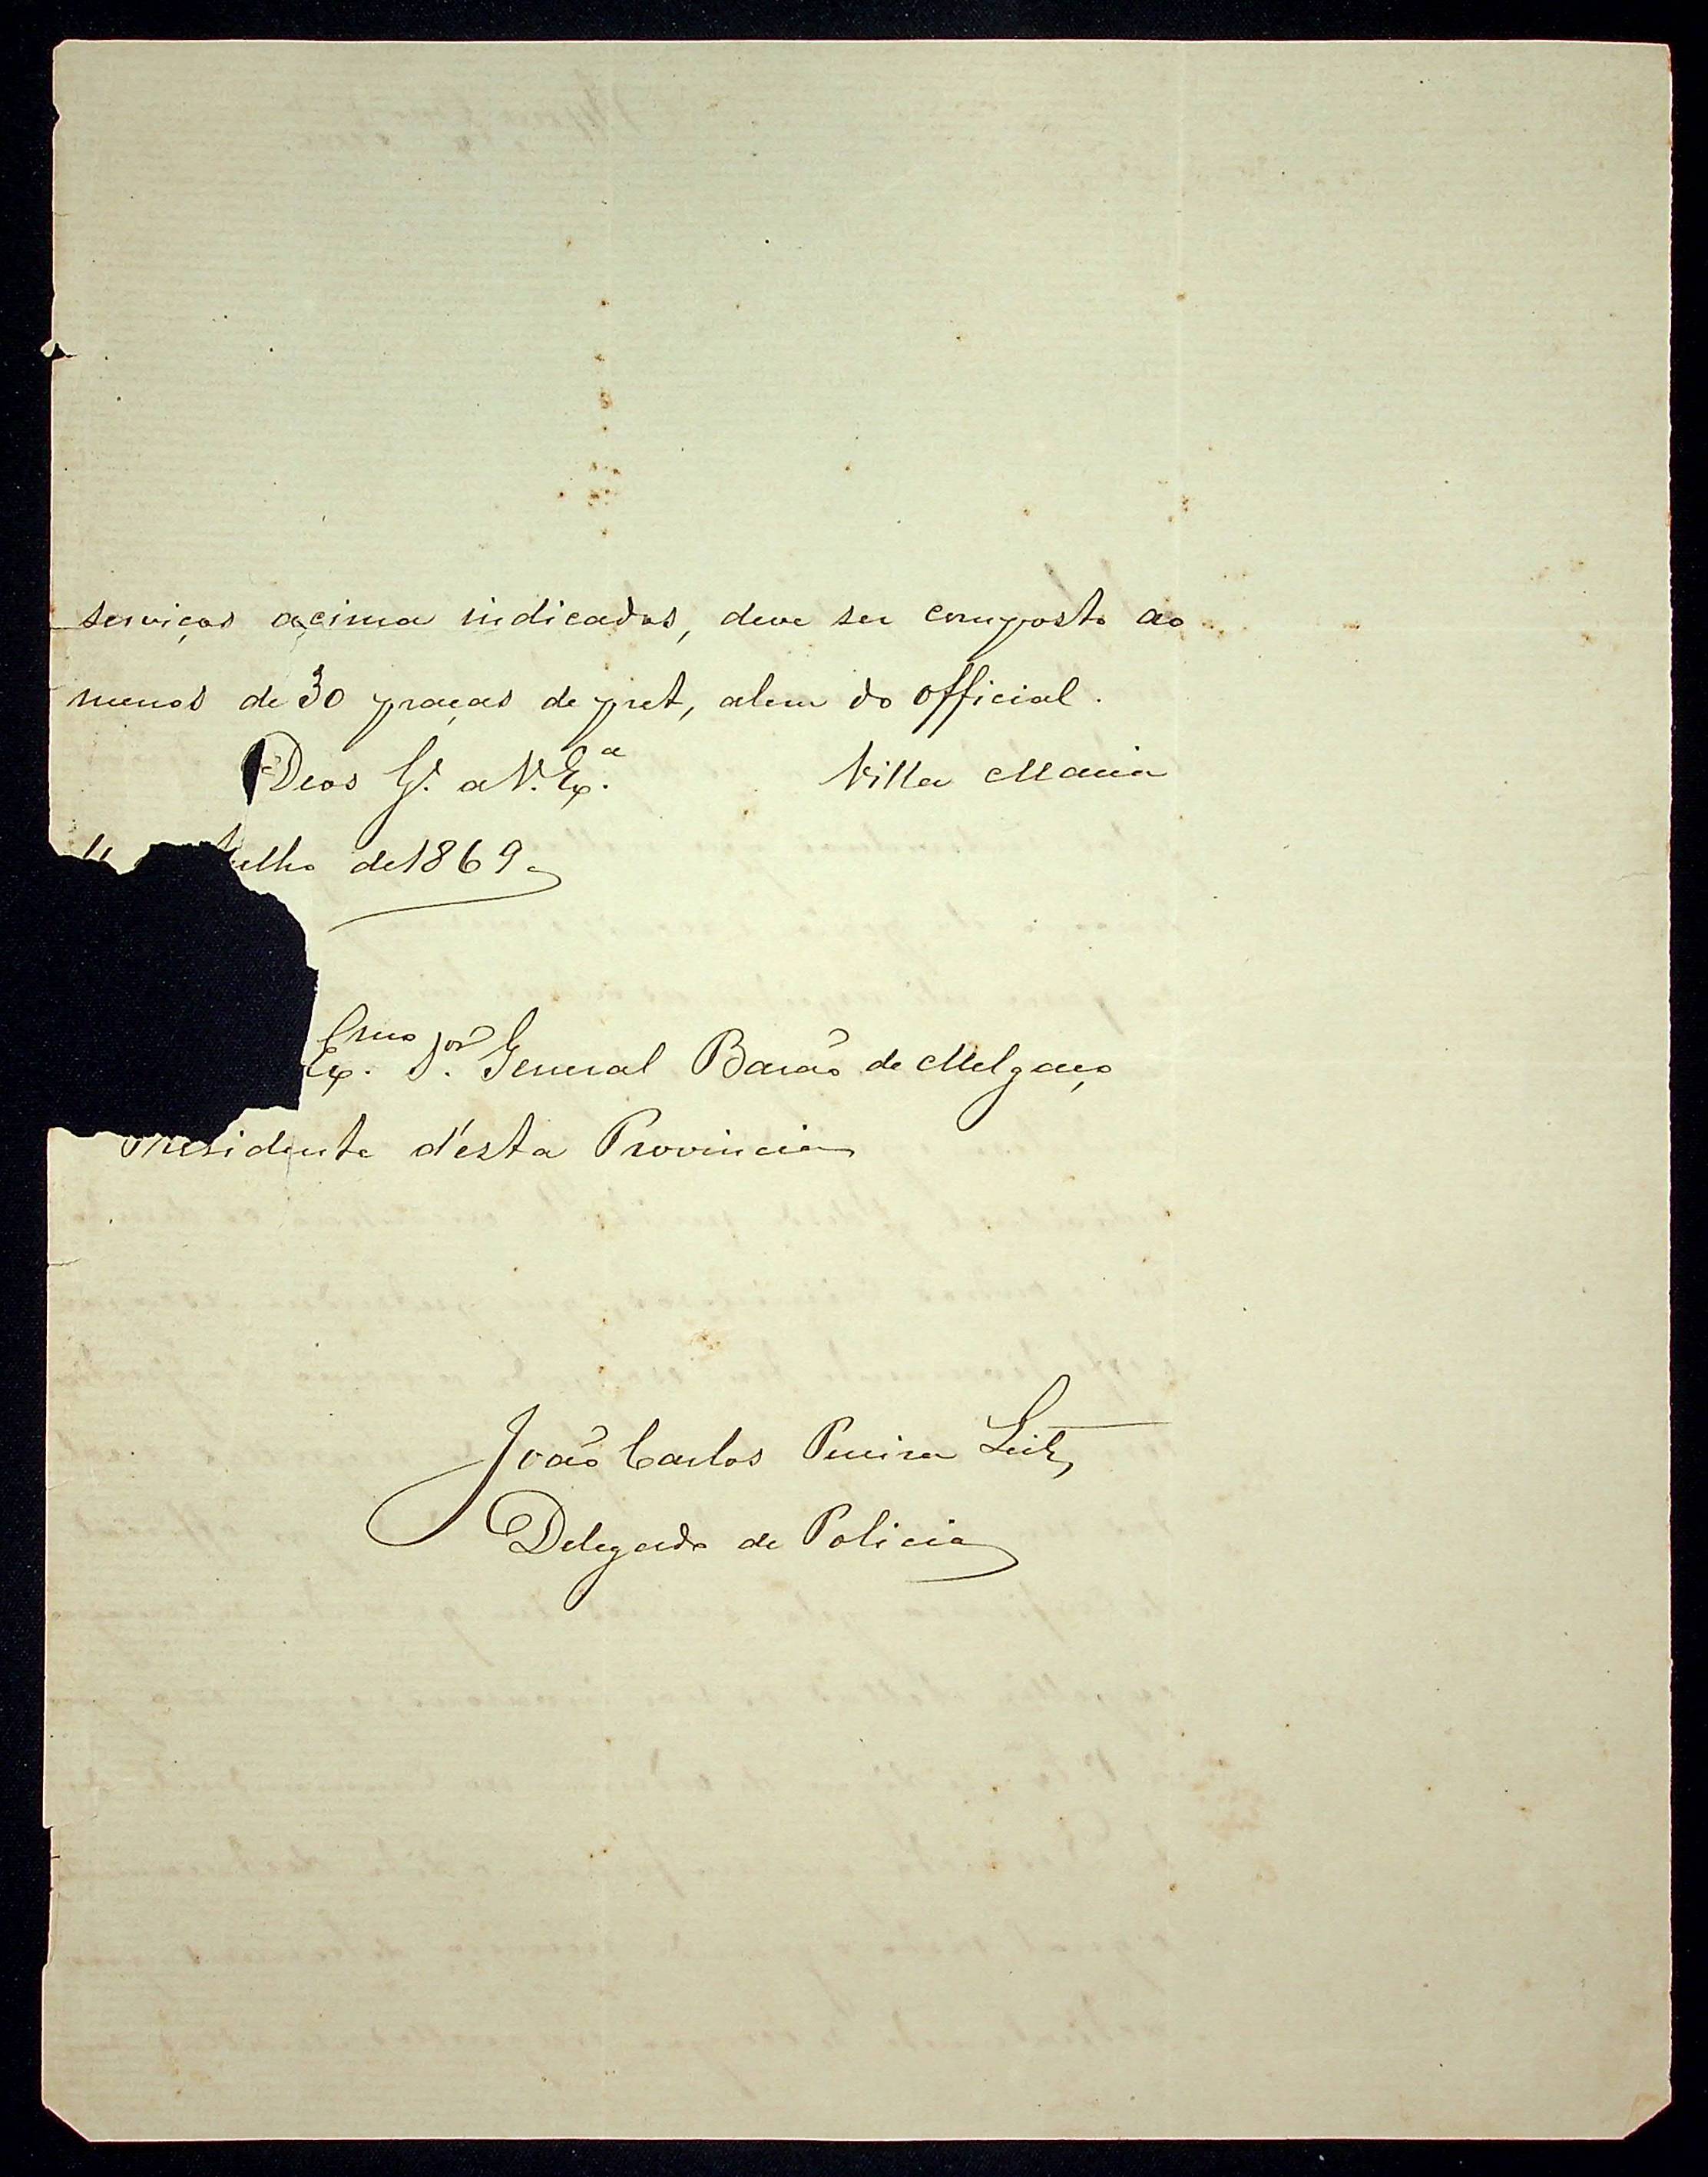 serviços acima indicados, deve ser composto ao
menos de 30 praças de pret, alem do official.
Deos G.e a V. Ex.a Villa Maria
Julho de 1869
Exmo Sor General Barão de Melgaço
Presidente d'esta Provincia
João Carlos Pereira Leite
Delegado de Policia